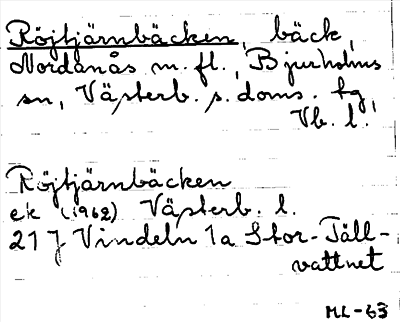 Röjtjärnbäcken, bäck,
Nordanås m. fl., Bjurholms
sn, Västerb. s. doms. tg,
Vb. l.
Röjtjärnbäcken
ek (1962) Västerb. l.
21 J Vindeln 1a Stor-Täll-
vattnet
ML-63